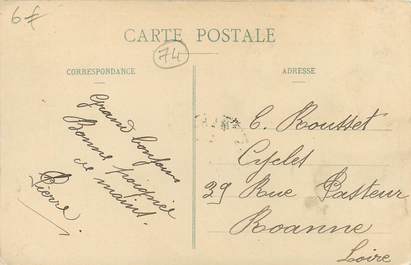 6€
CARTE POSTALE
74
CORRESPONDANCE
ADRESSE
Grand bonjour
Bonne poignée
de mains.
Pierre.
C. Rousset
Cycles
39 Rue Pasteur
Roanne
Loire